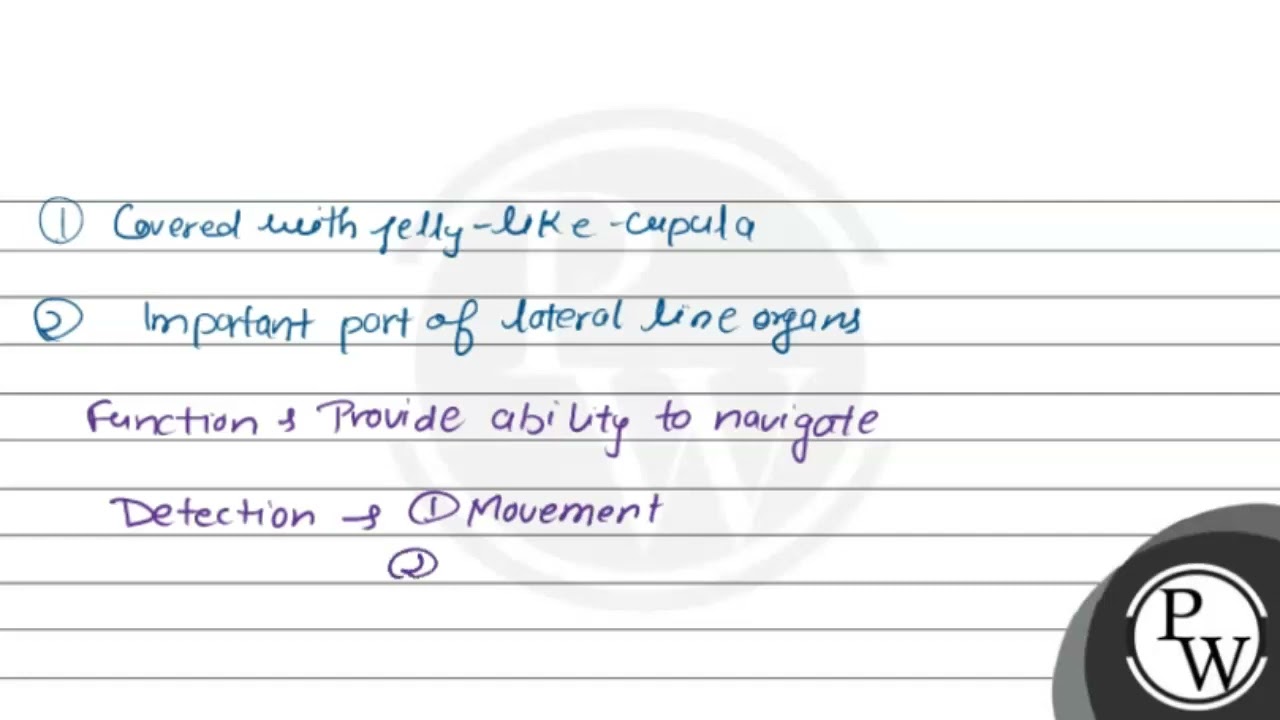 ① Covered with jelly-like-cupula
② Important part of lateral line organs
Function → Provide ability to navigate
Detection → ① Movement
②
PW
PW